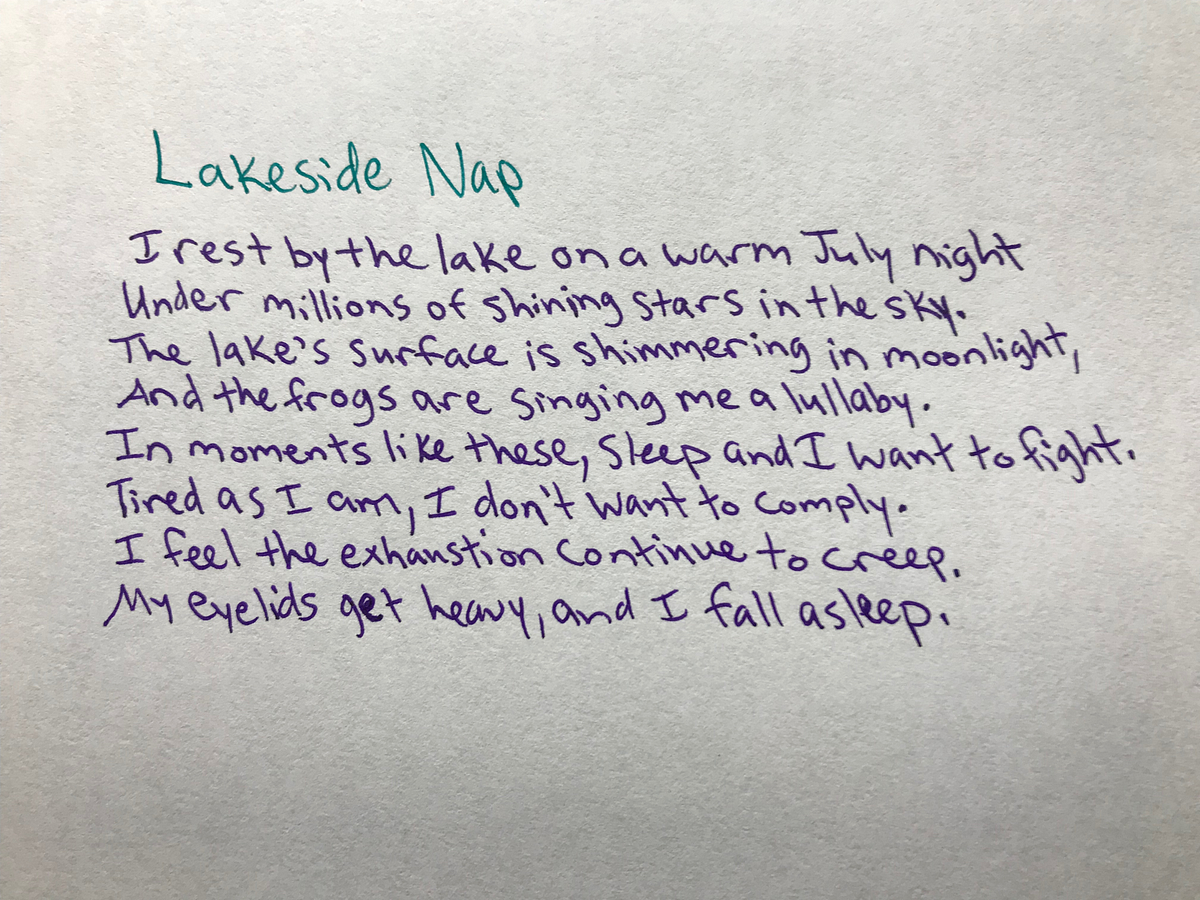 Lakeside Nap
I rest by the lake on a warm July night
Under millions of shining stars in the sky.
The lake's surface is shimmering in moonlight,
And the frogs are singing me a lullaby.
In moments like these, sleep and I want to fight.
Tired as I am, I don't want to comply.
I feel the exhaustion continue to creep.
My eyelids get heavy, and I fall asleep.